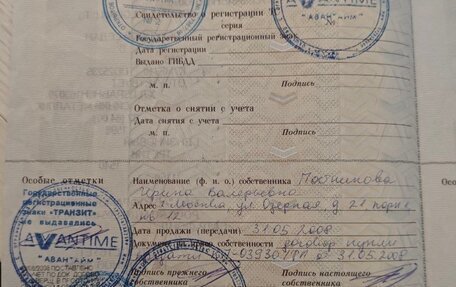 Свидетельство о регистрации ТС
серия №
Государственный регистрационный знак
Дата регистрации
Выдано ГИБДД
М. П. Подпись
Отметка о снятии с учета
Дата снятия с учета
М. П. Подпись
AVANTIME
"АВАНТАЙМ"
Особые отметки
Государственные
регистрационные
знаки "ТРАНЗИТ"
не выдавались
AVANTIME
"АВАНТАЙМ"
Наименование (ф. и. о.) собственника Постникова
Ирина Валерьевна
Адрес г. Москва, ул. Озерная, д. 21
кв. 12
Дата продажи (передачи) 31.05.2008
Документ на право собственности договор купли
31.05.2008
Подпись прежнего
собственника
Подпись настоящего
собственника